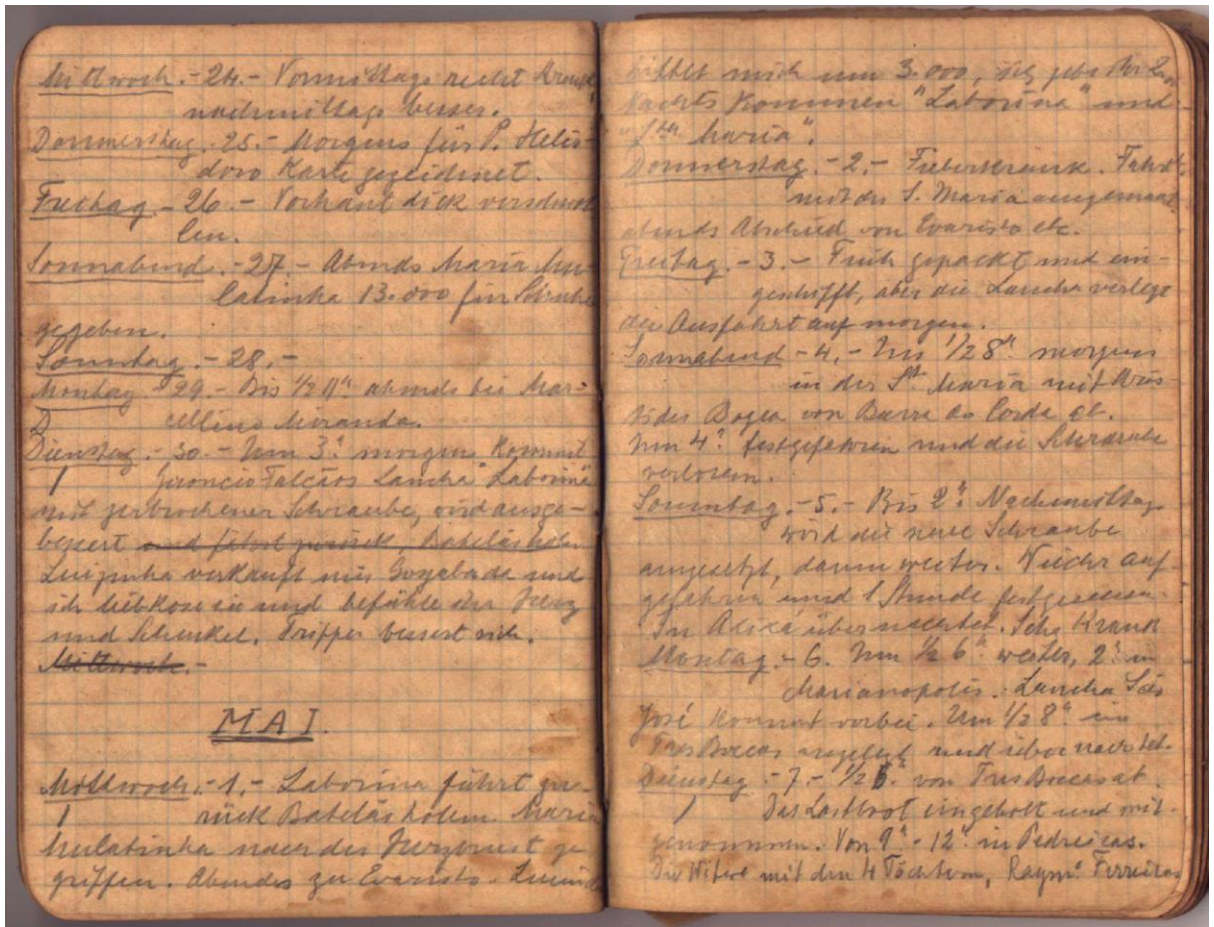 Mittwoch.-24.- Vormittags recht krank,
nachmittags besser.
Donnerstag.-25.- Morgens für P. Helio-
doro Karte gezeichnet.
Freitag.-26.- Vorhaut dick verschwol-
len.
Sonnabend.-27.- Abends Maria Mu-
latinha 13.000 für Schuhe
gegeben.
Sonntag.-28.-
Montag.-29.- Bis ½11h abends bei Mar-
cellino Miranda.
Dienstag.-30.- Um 3h morgens kommt
1 Geroncio Falcãos Lancha "Laborina"
mit zerbrochener Schraube, wird ausge-
bessert und fährt zurück, Batelãs holen
Luizinha verkauft mir Goyabada und
ich liebkose sie und befühle ihr Herz
und Schenkel. Tripper bessert sich.
Mittwoch.-
MAI.
Mittwoch.-1.- Laborina fährt zu-
1 rück Batelãs holen. Maria
Mulatinha nach der Herzbrust ge-
griffen. Abends zu Evaristo.
bittet mich um 3.000, ich gebe ihr 2.000
Nachts kommen "Laborina" und
"Sta Maria".
Donnerstag.-2.- Fieberkrank. Fahrt
mit der S. Maria ausgemacht
abends Abschied von Evaristo etc.
Freitag.-3.- Früh gepackt und ein-
geschifft, aber die Lancha verlegt
die Ausfahrt auf morgen.
Sonnabend-4.- Um 1/2 8h morgens
in der Sta Maria mit Aris-
tides Bogea von Barra do Corda ab.
Um 4h festgefahren und die Schraube
verloren.
Sonntag.-5.- Bis 2h Nachmittag
wird die neue Schraube
angesetzt, dann weiter. Wieder auf-
gefahren und 1 Stunde festgesessen.
In Axixá übernachtet. Sehr krank
Montag.-6. Um ½ 6h weiter, 2h in
Marianopolis. Lancha São
José kommt vorbei. Um 1/2 8h in
Tres Boccas angelegt und übernachtet.
Dienstag.-7.- ½ 6h von Tres Boccas ab.
1 Das Lastboot eingeholt und mit-
genommen. Von 9h-12h in Pedreiras.
Die Witwe mit den 4 Töchtern, Raym° Ferreiras